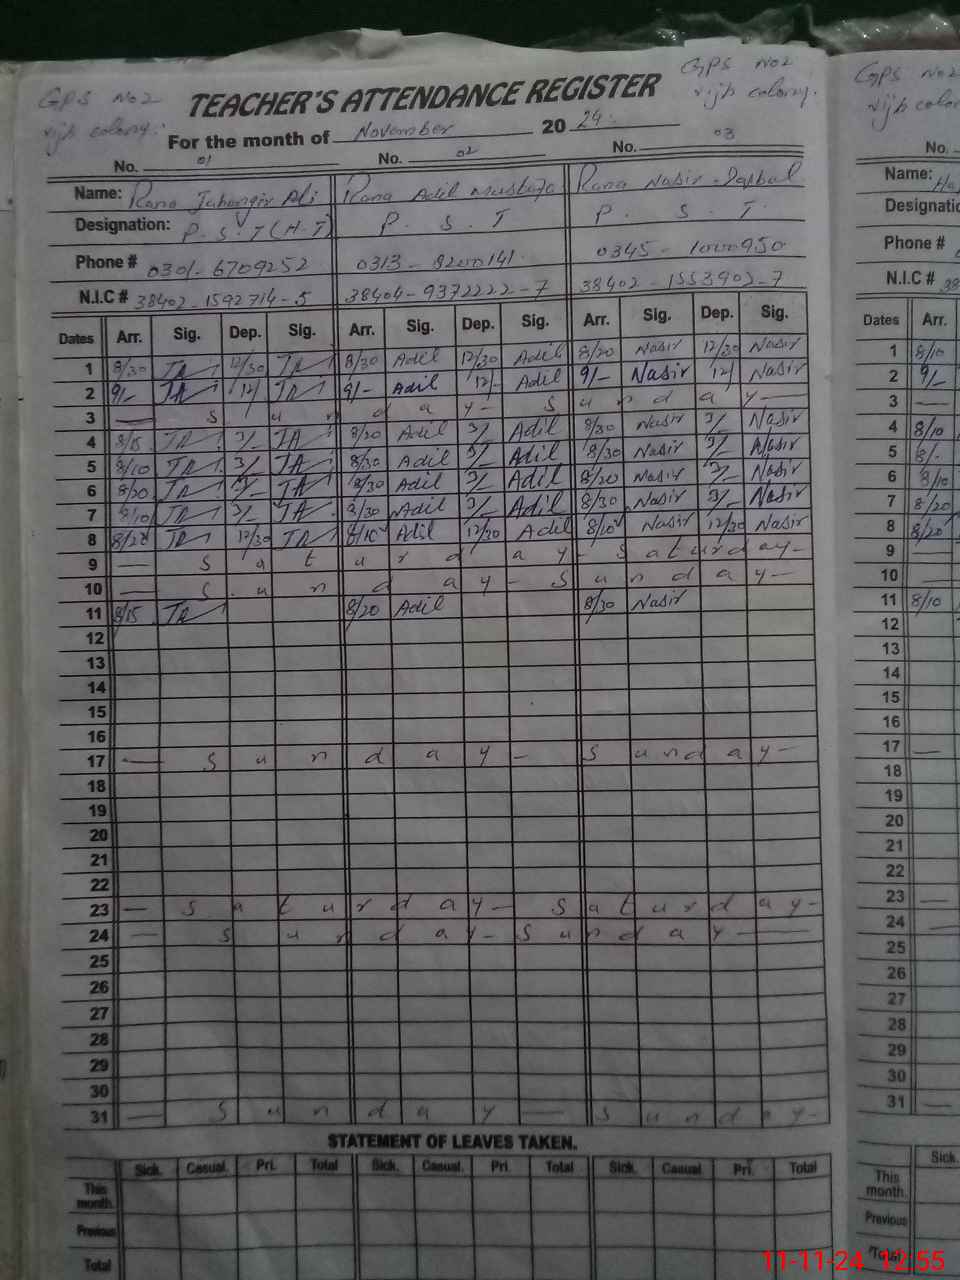 GPS No2 TEACHER'S ATTENDANCE REGISTER GPS No2
rijh colony. For the month of November 20 24. rijh colony.
No. 01 No. 02 No. 03
Name: Rana Jahangir Ali Rana Adil Mustafa Rana Nasir Iqbal
Designation: P.S.T (H.T) P. S. T P. S. T.
Phone # 0301-6709252 0313-8200141 0345-1000950
N.I.C # 38402-1592714-5 38404-9372222-7 38402-1553902-7
Dates Arr. Sig. Dep. Sig. Arr. Sig. Dep. Sig. Arr. Sig. Dep. Sig.
1 8/30 JA 12/30 JA 8/30 Adil 12/30 Adil 8/20 Nasir 12/30 Nasir
2 9/- JA 12/ JA 9/- Adil 12/- Adil 9/- Nasir 12/ Nasir
3 — Sunday - Sunday —
4 8/15 JA 3/- JA 8/30 Adil 3/- Adil 8/30 Nasir 3/- Nasir
5 8/10 JA 3/- JA 8/30 Adil 3/- Adil 8/30 Nasir 3/- Nasir
6 8/20 JA 3/- JA 8/30 Adil 3/- Adil 8/20 Nasir 3/- Nasir
7 8/10 JA 3/- JA 8/30 Adil 3/- Adil 8/30 Nasir 3/- Nasir
8 8/20 JA 12/30 JA 8/10 Adil 12/30 Adil 8/10 Nasir 12/30 Nasir
9 — Saturday - Saturday -
10 — Sunday - Sunday —
11 8/15 JA 8/20 Adil 8/30 Nasir
12
13
14
15
16
17 — Sunday - Sunday —
18
19
20
21
22
23 — Saturday — Saturday -
24 — Sunday - Sunday —
25
26
27
28
29
30
31 — Sunday — Sunday -
STATEMENT OF LEAVES TAKEN.
Sick. Casual. Pri. Total Sick. Casual. Pri. Total Sick. Casual Pri. Total
This month.
Previous
Total
GPS No2
rijh colony
No.
Name:
Designatio
Phone #
N.I.C # 38
Dates Arr.
1 8/10
2 9/-
3 —
4 8/10
5 8/-
6 8/10
7 8/20
8 8/20
9
10 —
11 8/10
12
13
14
15
16
17 —
18
19
20
21
22
23 —
24 —
25
26
27
28
29
30
31 —
Sick.
This month.
Previous
Total
11-11-24 12:55